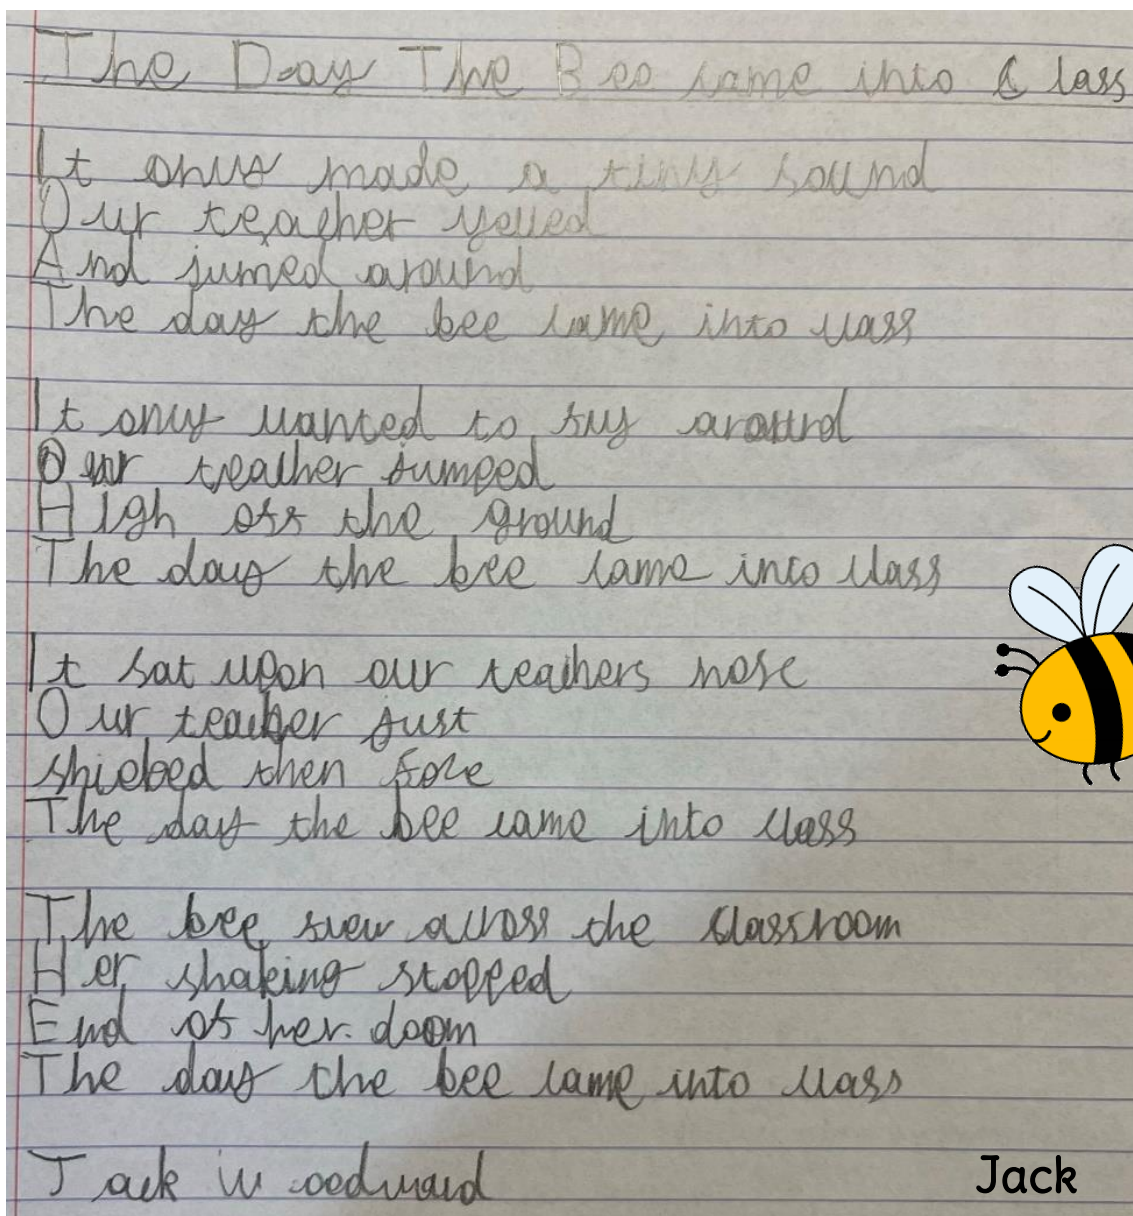 The Day The Bee came into Class
It only made a tiny sound
Our teacher yelled
And jumed around
The day the bee came into class
It only wanted to fly around
Our teacher jumped
High off the ground
The day the bee came into class
It sat upon our teachers nose
Our teacher just
then froze
The day the bee came into class
The bee flew across the classroom
Her shaking stopped
End of her doom
The day the bee came into class
Jack Woodward
Jack